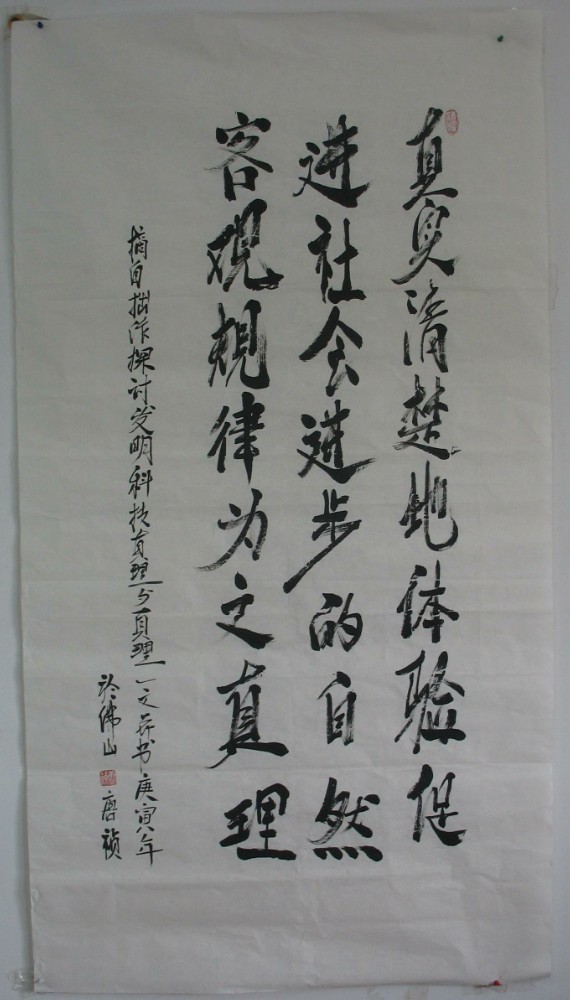 真实清楚地体验促
进社会进步的自然
客观规律为之真理
摘自拙作探讨发明科技真理与真理一文并书庚寅年
於佛山 唐祯